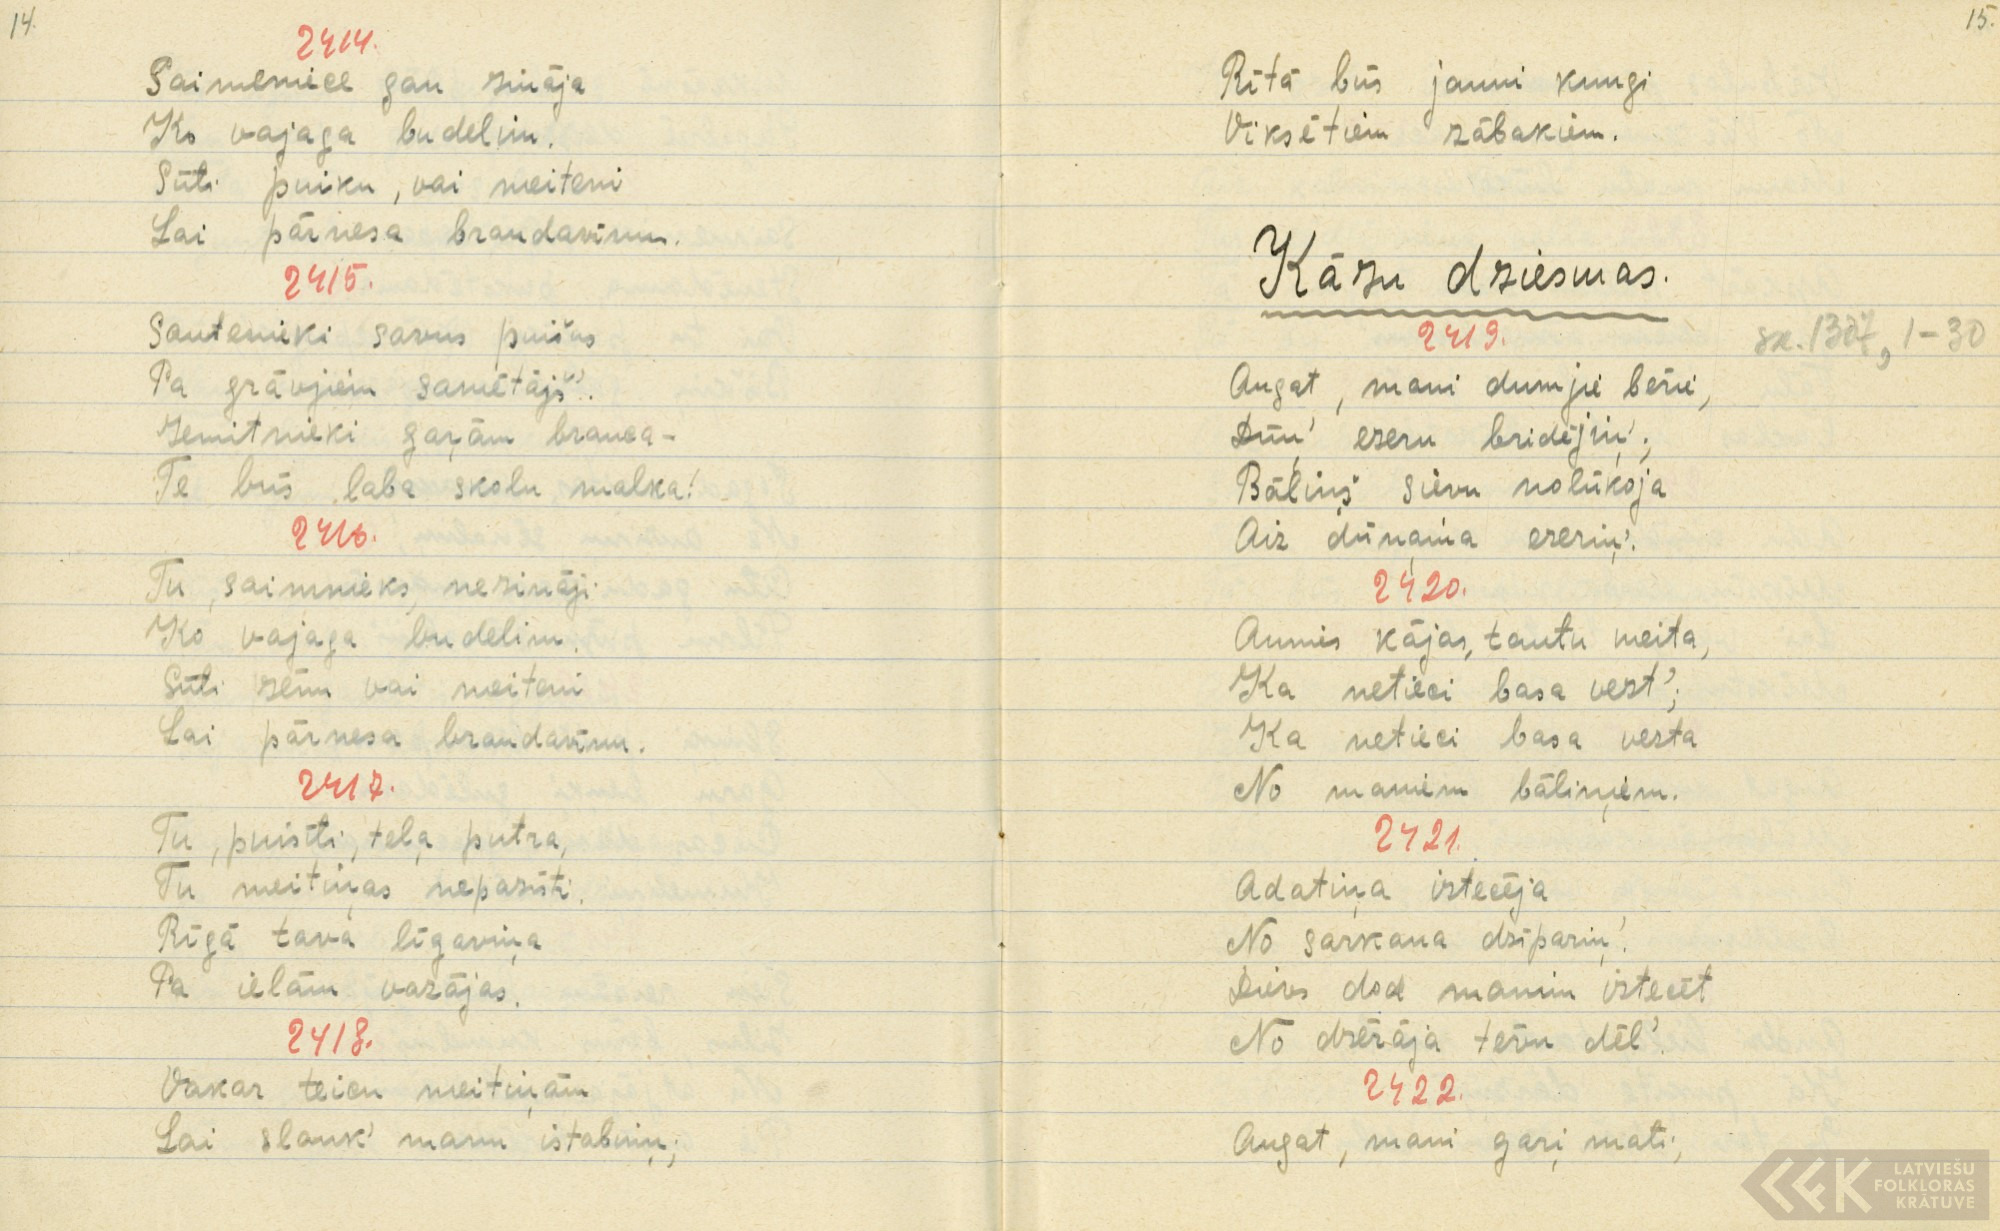 14.
2414.
Saimeniece gan zināja
Ko vajaga budelim.
Sūti puiku, vai meiteni
Lai pārnesa brandavīnu.
2415.
Sautenieki savus puišus
Pa grāvjiem samētājš'.
Zemitnieki gaŗām brauca –
Te būs laba skolu malka!
2416.
Tu, saimnieks, nezināji
Ko vajaga budelim.
Sūti zēnu vai meiteni
Lai pārnesa brandavīnu.
2417.
Tu, puisīti, teļa putra,
Tu meitiņas nepazīsti.
Rīgā tava līgaviņa
Pa ielām vazājas.
2418.
Vakar teicu meitiņām
Lai slauk' manu istabiņu;
15.
Rītā būs jauni kungi
Viksētiem zābakiem.
Kāzu dziesmas.
2419.
sk. 1307, 1–30
Augat, mani dumjie bērie,
Dūņ' ezeru bridējiņ';
Bāliņš sievu nolūkoja
Aiz dūņaiņa ezeriņ'.
2420.
Aunies kājas, tautu meita,
Ka netieci basa vest';
Ka netieci basa vesta
No maniem bāliņiem.
2421.
Adatiņa iztecēja
No sarkana dzīpariņ'.
Dievs dod manim iztecēt
No dzērāja tēvu dēl'.
2422.
Augat, mani gaŗi mati;
LATVIEŠU
FOLKLORAS
KRĀTUVE